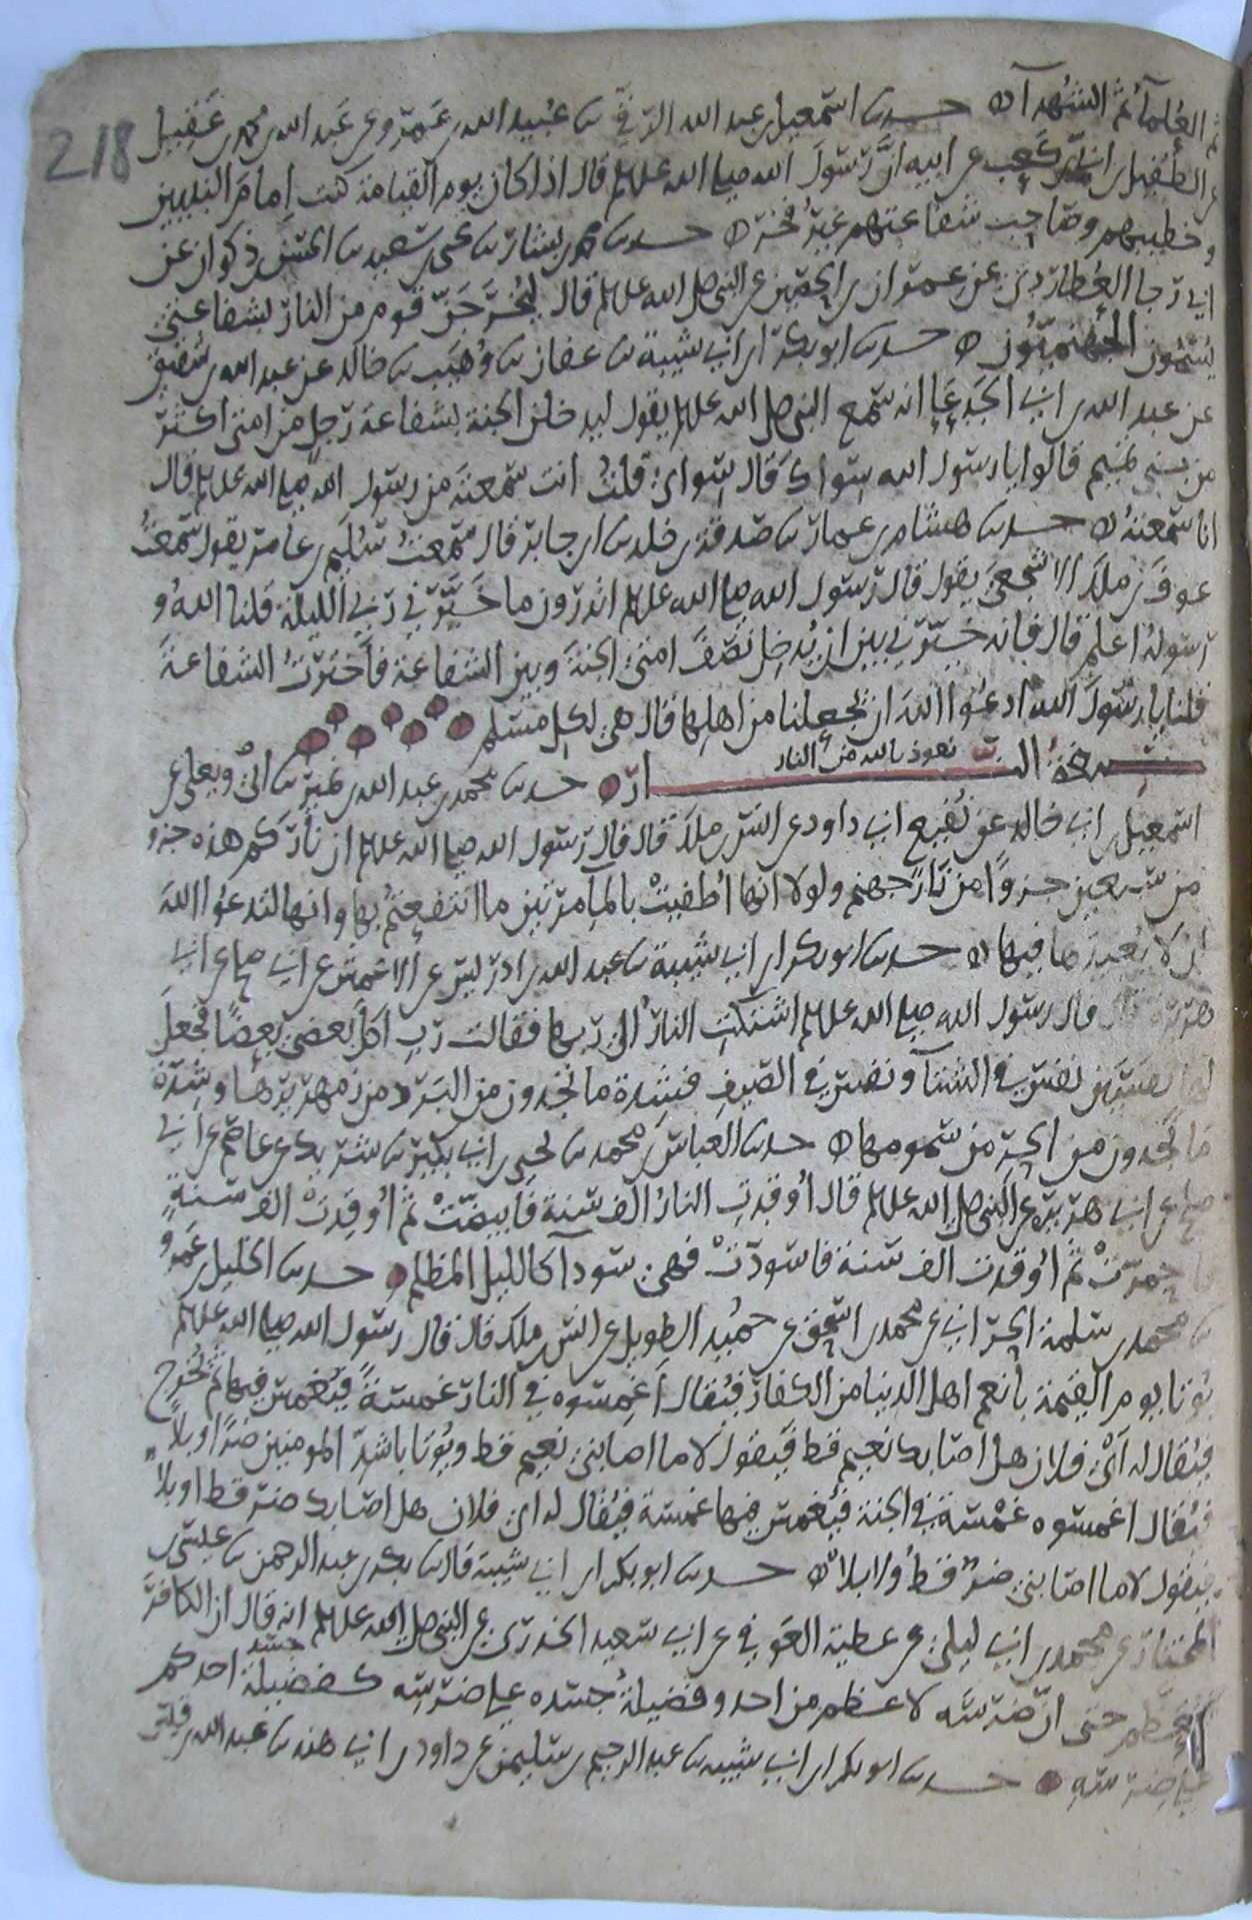 218
ثم العلماء ثم الشهدآ حدثنا اسمعيل بن عبد الله الرقي ثنا عبيد الله بن عمرو عن عبد الله بن محمد بن عقيل
عن الطفيل بن ابي بن كعب عن ابيه ان رسول الله صلى الله علیہ وسلم قال اذا كان يوم القيامة كنت امام النبيين
وخطيبهم وصاحب شفاعتهم غير فخر حدثنا محمد بن بشار ثنا يحيى بن سعيد ثنا الحسن بن ذكوان عن
ابي رجا العطاردي عن عمران بن الحصين عن النبي صلى الله عليه وسلم قال ليخرجن قوم من النار بشفاعتي
يسمون الجهنميون حدثنا ابو بكر ابن ابي شيبة ثنا عفان ثنا وهيب ثنا خالد عن عبد الله بن شقيق
عن عبد الله بن ابي الجدعا انه سمع النبي صلى الله عليه وسلم يقول ليدخلن الجنة بشفاعة رجل من امتي اكثر
من بني تميم قالوا يا رسول الله سواك قال سواي قلت انت سمعته من رسول الله صلى الله عليه وسلم قال
انا سمعته حدثنا هشام بن عمار ثنا صدقة بن خلد ثنا ابن جابر قال سمعت سليم بن عامر يقول سمعت
عوف بن ملك الاشجعي يقول قال رسول الله صلى الله عليه وسلم اتدرون ما خيرني ربي الليلة قلنا الله و
رسوله اعلم قال فانه خيرني بين ان يدخل نصف امتي الجنة وبين الشفاعة فاخترت الشفاعة
قلنا يا رسول الله ادعوا الله ان يجعلنا من اهلها قال هي لكل مسلم
صفة النـــار نعوذ بالله من النار حدثنا محمد بن عبد الله بن نمير ثنا ابي ويعلى عن
اسمعيل بن ابي خالد عن نفيع ابي داود عن انس بن ملك قال قال رسول الله صلى الله عليه وسلم ان ناركم هذه جزو
من سبعين جزوا من نار جهنم ولولا انها اطفيت بالما مرتين ما انتفعتم بها وانها لتدعوا الله
ان لا يعيدها فيها حدثنا ابو بكر ابن ابي شيبة ثنا عبد الله بن ادريس عن الاعمش عن ابي صالح عن ابي
هريرة قال قال رسول الله صلى الله عليه وسلم اشتكت النار الى ربها فقالت رب اكل بعضي بعضا فجعل
لها نفسين نفس في الشتآ ونفس في الصيف فشدة ما تجدون من البرد من زمهريرها وشدة
ما تجدون من الحر من سمومها حدثنا العباس بن محمد ثنا يحيى بن ابي بكير ثنا شريك عن عاصم عن ابي
صالح عن ابي هريرة عن النبي صلى الله عليه وسلم قال اوقدت النار الف سنة فابيضت ثم اوقدت الف سنة
فاحمرت ثم اوقدت الف سنة فاسودت فهي سودآ كالليل المظلم حدثنا الخليل بن عمرو
ثنا محمد بن سلمة الحراني عن محمد بن اسحق عن حميد الطويل عن انس بن ملك قال قال رسول الله صلى الله عليه وسلم
يوتا يوم القيمة بانعم اهل الدنيا من الكفار فيقال اغمسوه في النار غمسة فيغمس فيها ثم يخرج
فيقال له اي فلان هل اصابك نعيم قط فيقول لا ما اصابني نعيم قط ويوتا باشد المومنين ضرا وبلا
فيقال اغمسوه غمسة في الجنة فيغمس فيها غمسة فيقال له اي فلان هل اصابك ضر قط او بلا
فيقول لا ما اصابني ضر قط ولا بلا حدثنا ابو بكر ابن ابي شيبة قال ثنا بكر بن عبد الرحمن ثنا عيسى بن
المختار عن محمد بن ابي ليلى عن عطية العوفي عن ابي سعيد الخدري عن النبي صلى الله عليه وسلم انه قال ان الكافر
ليعظم حتى ان ضرسه لاعظم من احد وفضيلة جسده على ضرسه كفضيلة جسد احدكم
على ضرسه حدثنا ابو بكر ابن ابي شيبه ثنا عبد الرحيم بن سليمن عن داود بن ابي هند ثنا عبد الله بن قيس